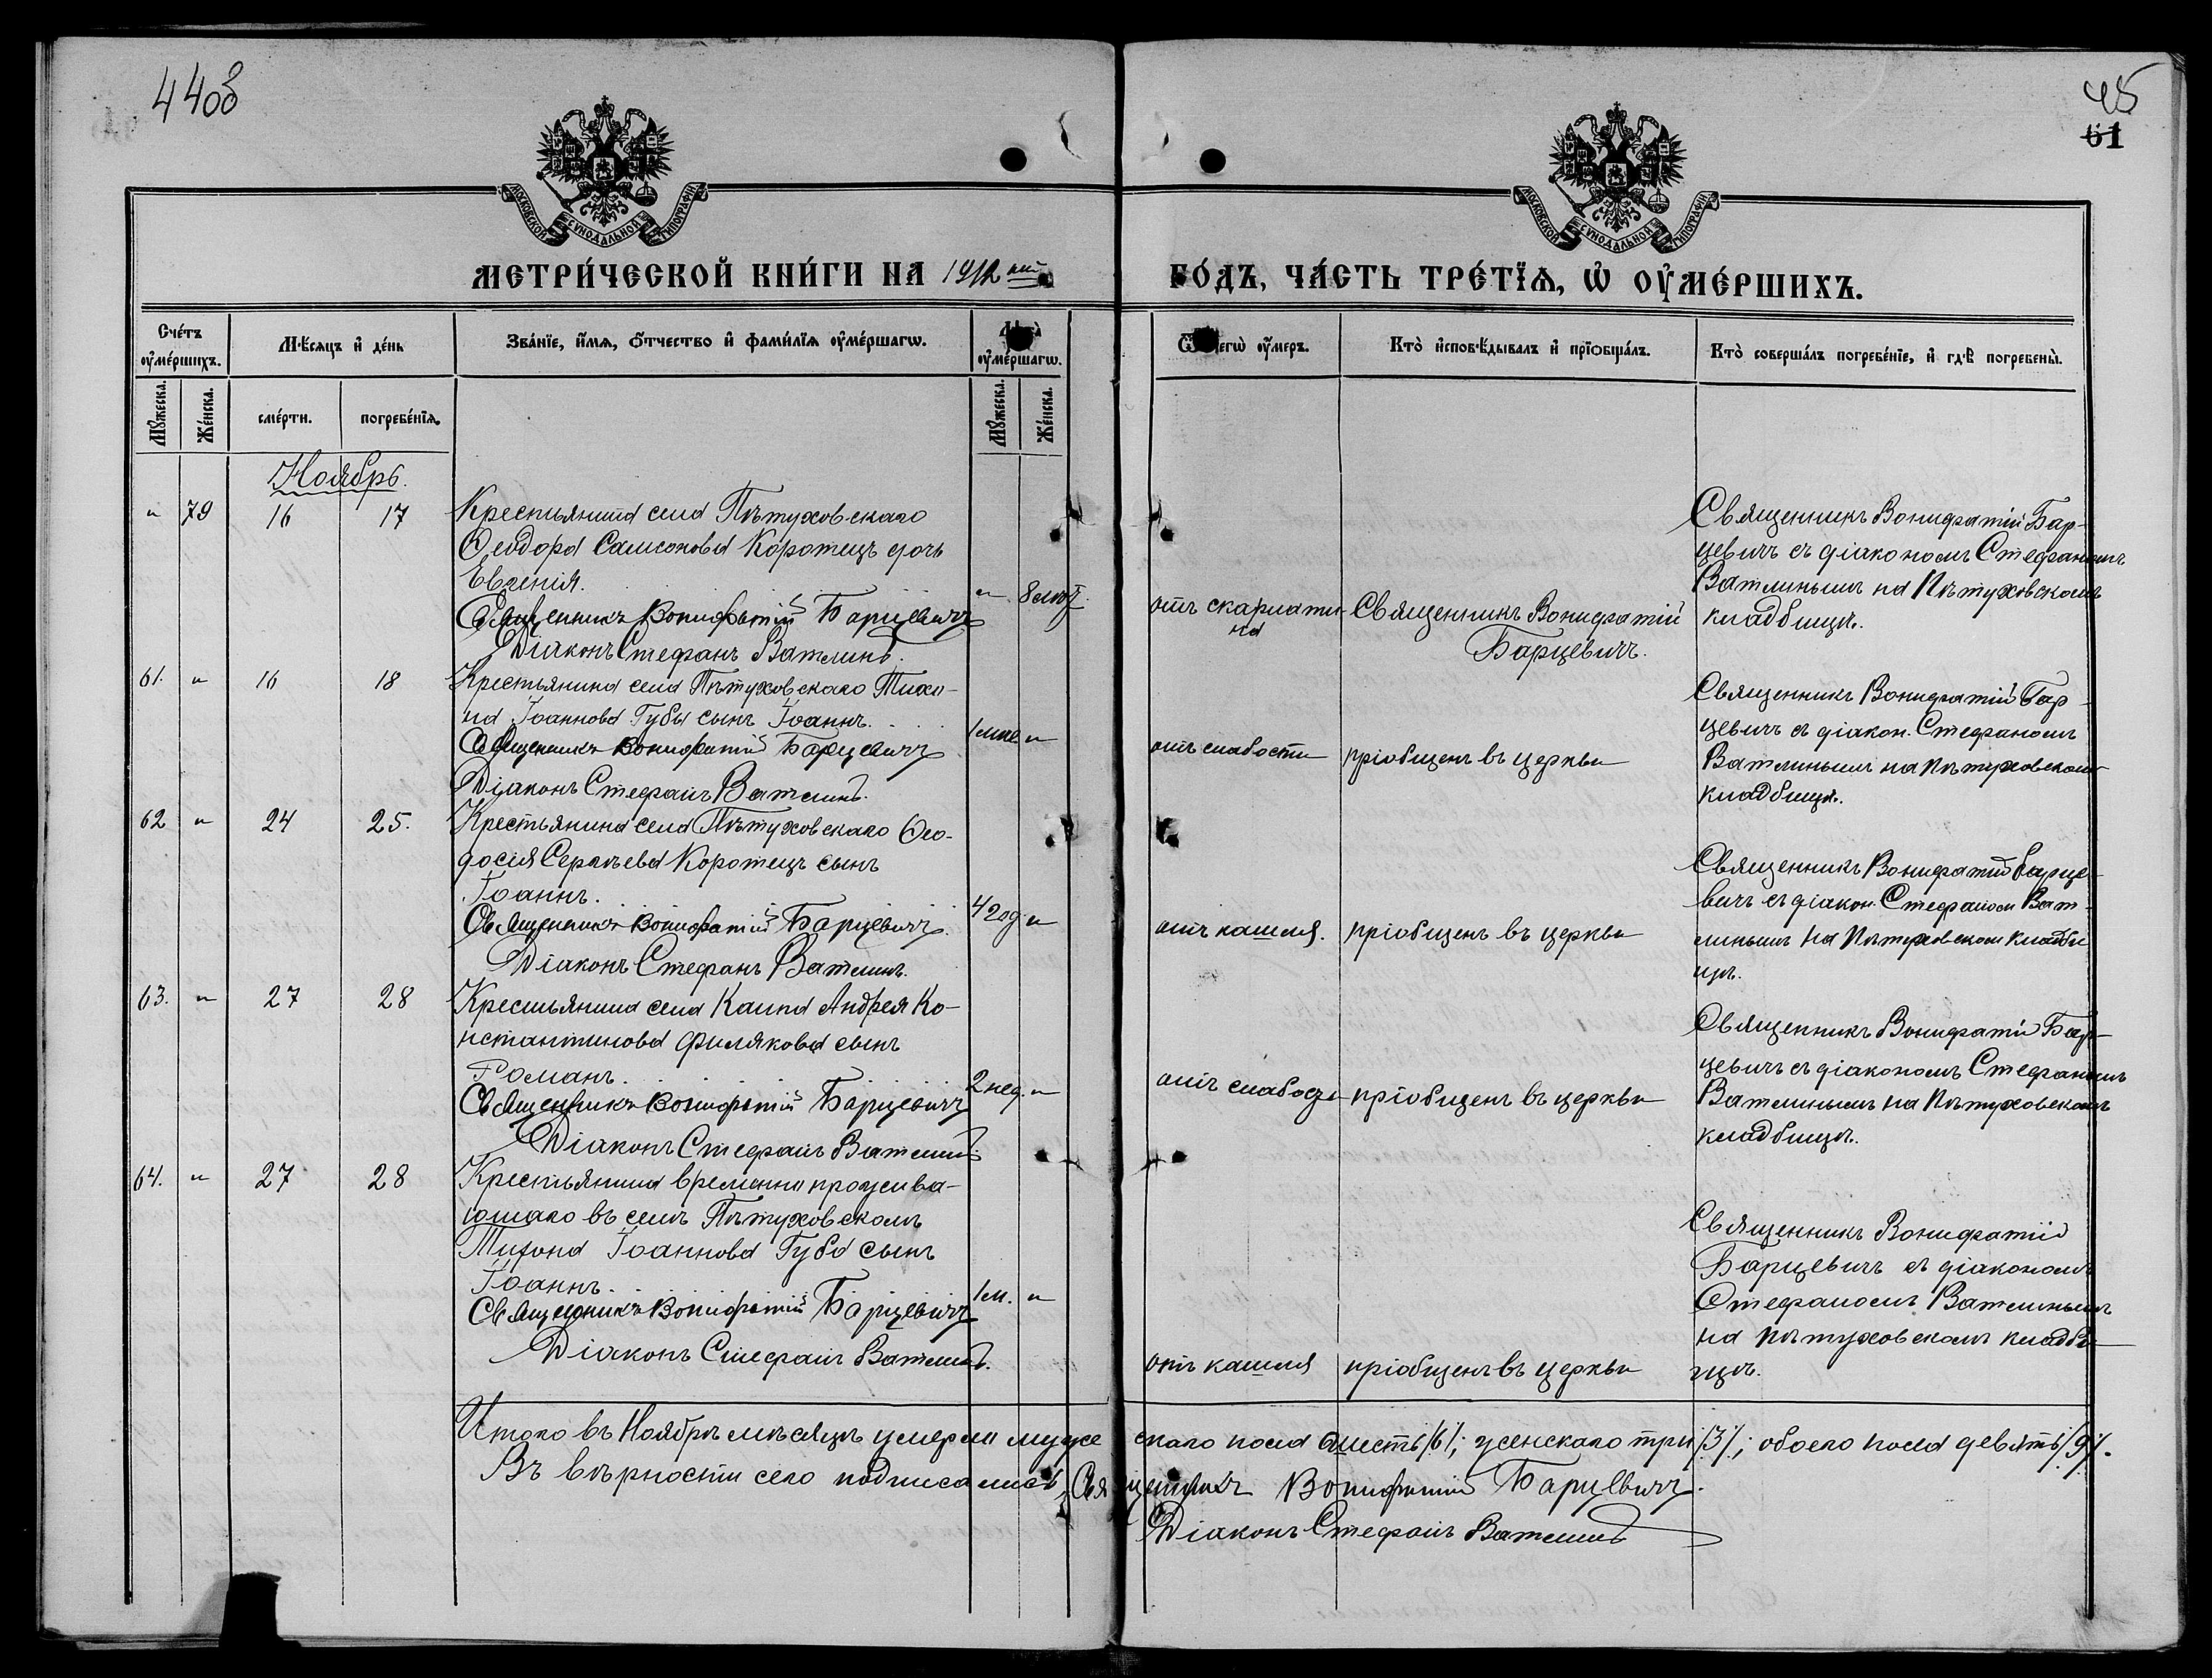 44об
45
61
МОСКОВСКОЙ СѴНОДАЛЬНОЙ ТИПОГРАФІИ
МОСКОВСКОЙ СѴНОДАЛЬНОЙ ТИПОГРАФІИ
МЕТРИ́ЧЕСКОЙ КНИ́ГИ НА 1912 ый
ГО́ДЪ, ЧА́СТЬ ТРЕ́ТЇѦ, Ѡ҆ ОУ҆МЕ́РШИХЪ.
Сче́тъ оу҆ме́ршихъ.
Мѣ́сяцъ и҆ де́нь
Зва́нїе, и҆́мѧ, ѻ҆́тчество и҆ фами́лїѧ оу҆ме́ршагѡ.
оу҆ме́ршагѡ.
оу҆́меръ.
Кто̀ и҆сповѣ́дывалъ и҆ прїѡбща́лъ.
Кто̀ соверша́лъ погребе́нїе, и҆ гдѣ̀ погребены̀.
Мꙋ́жеска.
Же́нска.
сме́рти.
погребе́нїѧ.
Мꙋ́жеска.
Же́нска.
Ноябрь.
" 79 16 17 Крестьянина села Пѣтуховскаго
Ѳеодора Самсонова Коротецъ дочь
Евгенія.
" 8 лѣтъ
Священникъ Вонифатій Барцевичъ
Діаконъ Стефанъ Ватлинъ.
отъ скарлати-
на
Священникъ Вонифатій
Барцевичъ.
Священникъ Вонифатій Бар-
цевичъ съ діакономъ Стефаномъ
Ватлинымъ на Пѣтуховскомъ
кладбищѣ.
61. " 16 18 Крестьянина села Пѣтуховскаго Тихо-
на Іоаннова Губы сынъ Іоаннъ.
1 мѣс "
Священникъ Вонифатій Барцевичъ
Діаконъ Стефанъ Ватлинъ.
отъ слабости
пріобщенъ въ церкви
Священникъ Вонифатій Бар-
цевичъ съ діакон. Стефаномъ
Ватлинымъ на Пѣтуховскомъ
кладбищѣ.
62 " 24 25. Крестьянина села Пѣтуховскаго Ѳео-
досія Сергѣева Коротецъ сынъ
Іоаннъ.
4 год "
Священникъ Вонифатій Барцевичъ.
Діаконъ Стефанъ Ватлинъ.
отъ кашля.
пріобщенъ въ церкви
Священникъ Вонифатій Барце-
вичъ съ діакон. Стефаном Ват-
линымъ на Пѣтуховском кладби
щѣ.
63. " 27 28 Крестьянина села Каипа Андрея Ко-
нстантинова Филякова сынъ
Романъ.
2 нед. "
Священникъ Вонифатій Барцевичъ
Діаконъ Стефанъ Ватлинъ.
отъ слабости
пріобщенъ въ церкви
Священникъ Вонифатій Бар-
цевичъ съ діакономъ Стефаномъ
Ватлинымъ на Пѣтуховскомъ
кладбищѣ.
64. " 27 28 Крестьянина временно прожива-
ющаго въ селѣ Пѣтуховскомъ
Тихона Іоаннова Губа сынъ
Іоаннъ.
1 м. "
Священникъ Вонифатій Барцевичъ
Діаконъ Стефанъ Ватлинъ.
отъ кашля
пріобщенъ въ церкви
Священникъ Вонифатій
Барцевичъ съ діакономъ
Стефаномъ Ватлинымъ
на Пѣтуховскомъ кладби-
щѣ.
Итого въ Ноябрѣ мѣсяцѣ умерло мужескаго пола шесть /6/; женскаго три /3/; обоего пола девять /9/.
Въ вѣрности сего подписались, Священникъ Вонифатій Барцевичъ.
Діаконъ Стефанъ Ватлинъ